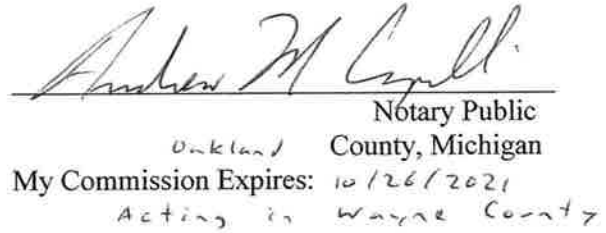 Andrew M
Notary Public
Oakland County, Michigan
My Commission Expires: 10/26/2021
Acting in Wayne County